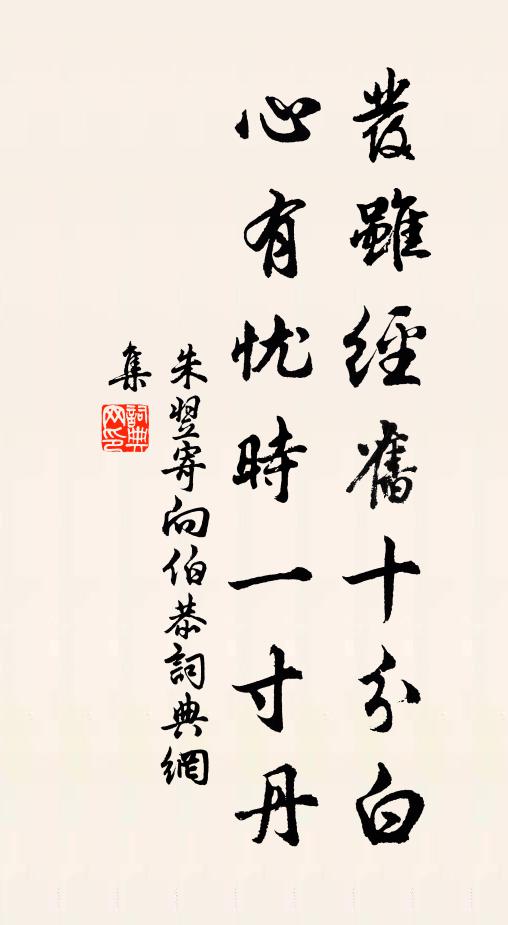 發雖經舊十分白
心有忧時一寸丹
朱翌寄向伯恭詞典網
集
詞典網印